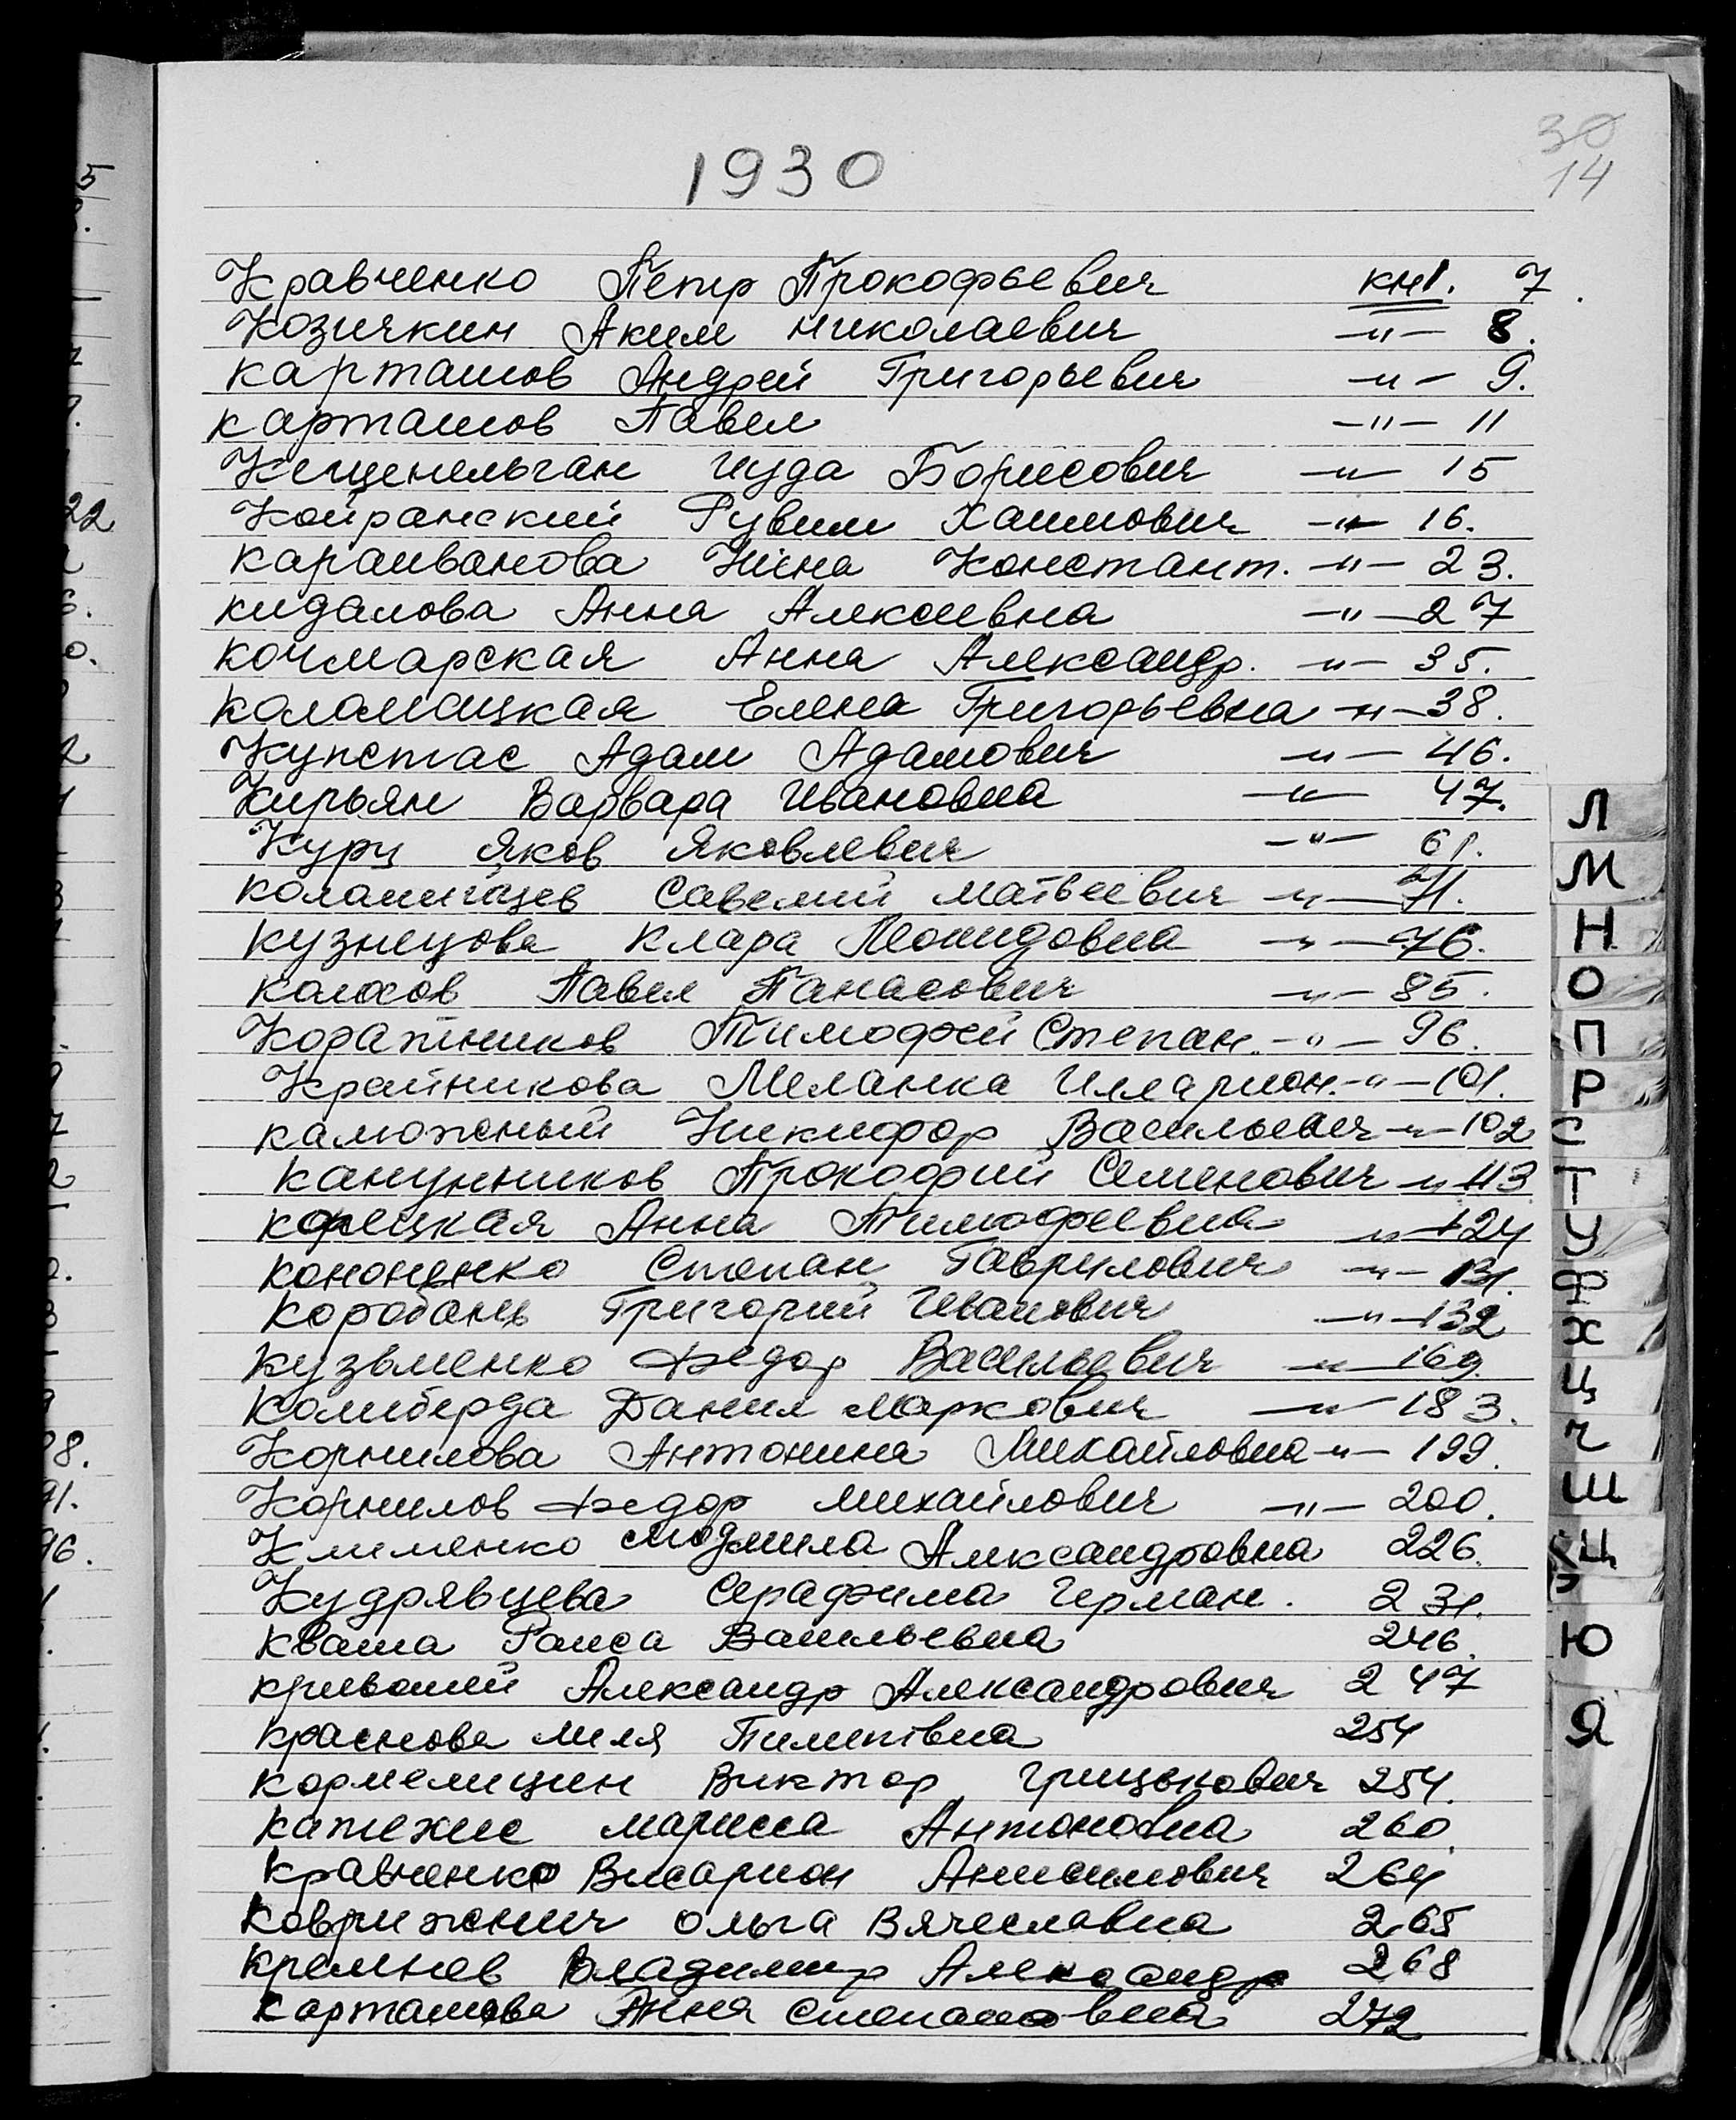 30
14
1930
Кравченко Петр Прокофьевич кн1. 7.
Козичкин Аким Николаевич -"- 8.
Карташов Андрей Григорьевич -"- 9.
Карташов Павел -"- 11
Иуда Борисович -"- 15
Койранский Рувим Хаимович -"- 16.
Караиванова Нина Констант. -"- 23.
Кидалова Анна Алексеевна -"- 27
Кочмарская Анна Александр. -"- 35.
Коломацкая Елена Григорьевна -"- 38.
Купстас Адам Адамович -"- 46.
Кирьян Варвара Ивановна -"- 47.
Курц Яков Яковлевич -"- 61.
Савелий Матвеевич -"- 71.
Кузнецова Клара Леонидовна -"- 76.
Колосов Павел Панасович -"- 85.
Тимофей Степан. -"- 96.
Крайникова Меланка Илларион. -"- 101.
Калюжный Никифор Васильевич -"- 102
Канунников Прокофий Семенович -"- 113
Корецкая Анна Тимофеевна -"- 124
Кононенко Степан Гаврилович -"- 131.
Коробань Григорий Иванович -"- 132
Кузьменко Федор Васильевич -"- 169.
Колиберда Данил Маркович -"- 183.
Корнилова Антонина Михайловна -"- 199.
Корнилов Федор Михайлович -"- 200.
Клименко Людмила Александровна 226.
Кудрявцева Серафима Герман. 231.
Кваша Раиса Васильевна 246.
Кривошей Александр Александрович 247
Краснова Лиля Пилипівна 254
Кормелицин Виктор Грицькович 254.
Мариса Антоновна 260.
Кравченко Висарион Анисимович 264
Коврижнич Ольга Вячеславна 265
Кремнев Владимир Александр 268
Карташова Анна Степановна 272
Л
М
Н
О
П
Р
С
Т
У
Ф
Х
Ц
Ч
Ш
Щ
Э
Ю
Я